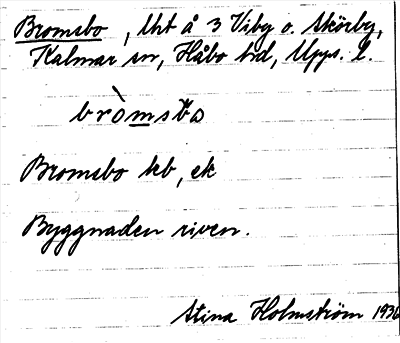 Bromsbo, lht å 3 Viby o. Skörby,
Kalmar sn, Håbo hd, Upps. l.
bròmsbo
Bromsbo hb, ek
Byggnaden riven.
Stina Holmström 1936